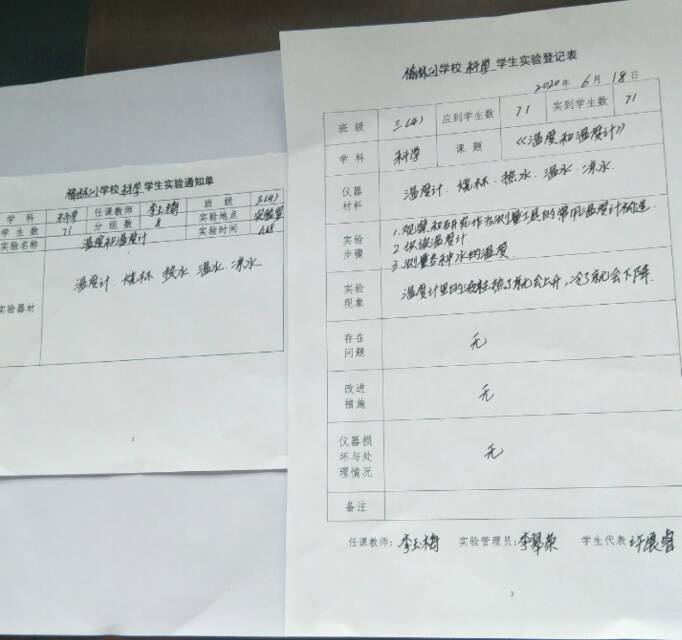 榆林小学校科学学生实验通知单
学 科 科学 任课教师 李玉梅 班 级 三(4)
学 生 数 71 分 组 数 8 实验地点 实验室
实验名称 温度和温度计 实验时间 6.18
实验器材 温度计、烧杯、热水、温水、凉水
1
榆林小学校科学学生实验登记表
2020年6月18日
班 级 三(4) 应到学生数 71 实到学生数 71
学 科 科学 课 题 《温度和温度计》
仪器材料 温度计、烧杯、热水、温水、凉水.
实验步骤 1.观察和研究作为测量工具的常用温度计构造.
2.认读温度计
3.测量各种水的温度
实验现象 温度计里的液柱热了就会上升,冷了就会下降.
存在问题 无
改进措施 无
仪器损坏与处理情况 无
备注
任课教师:李玉梅 实验管理员:李翠荣 学生代表 许展睿
3